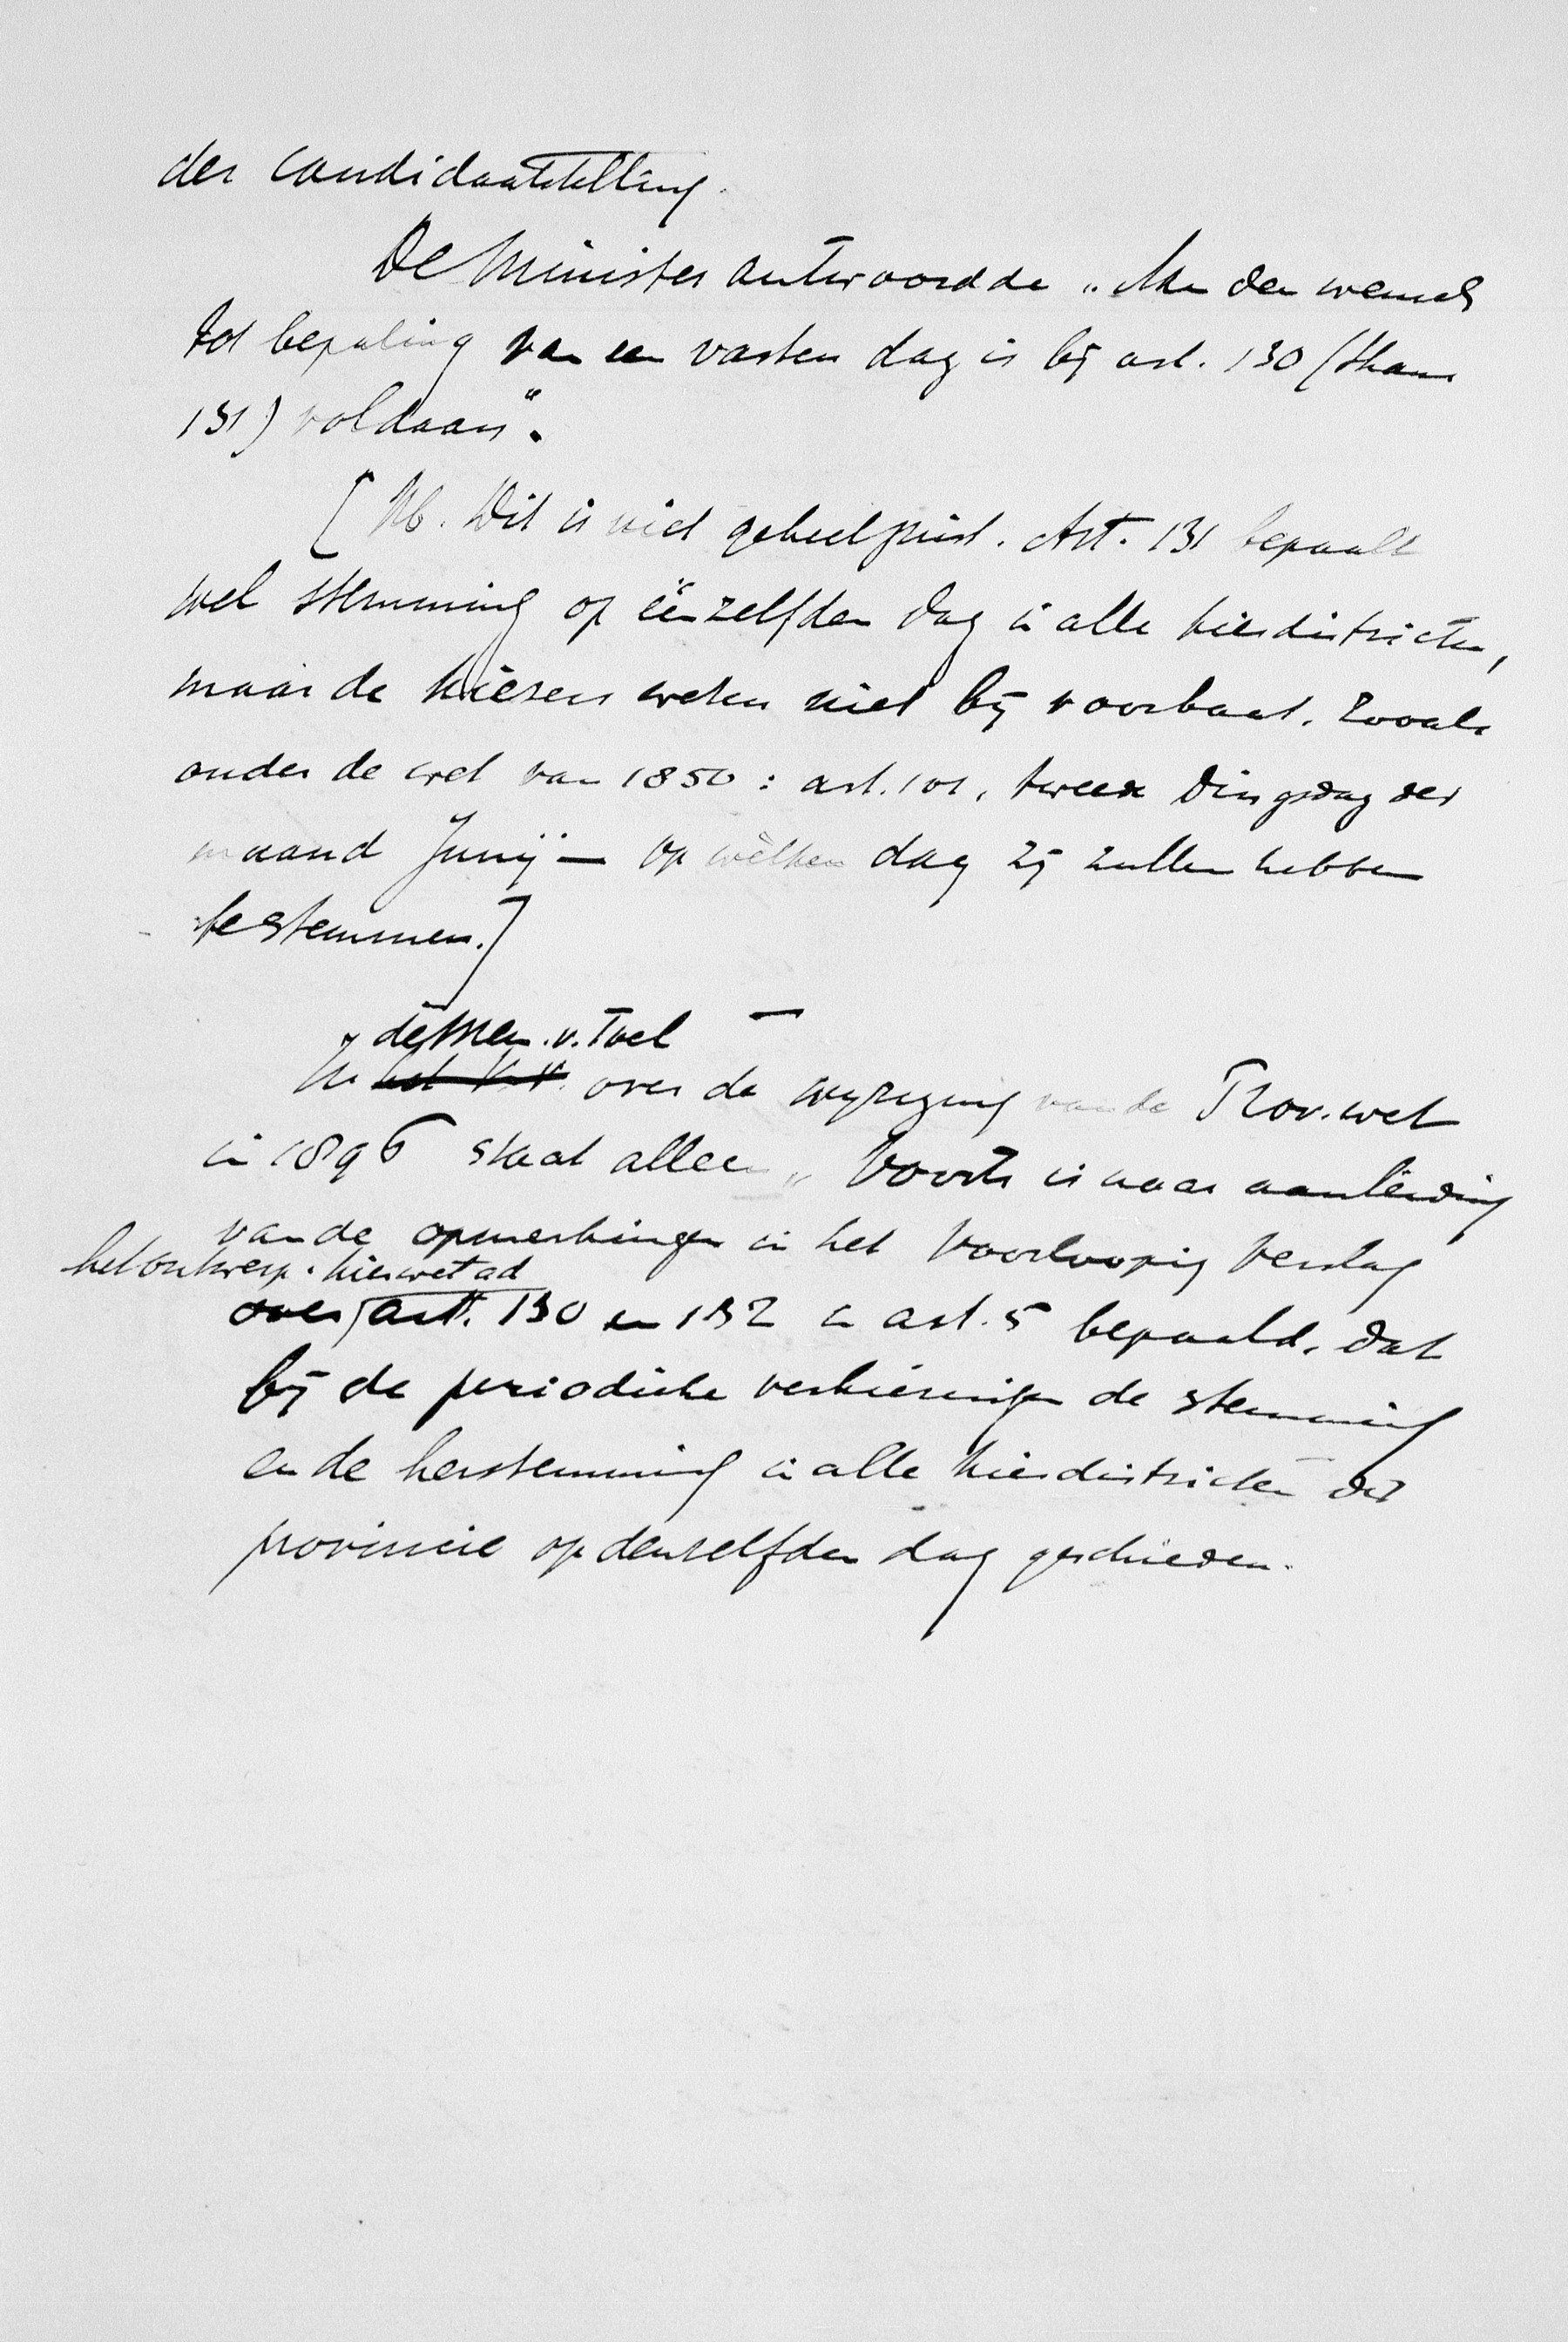 der candidaatstelling.
De Minister antwoordde „Aan den wensch
tot bepaling van een vasten dag is bij art. 130 (thans
131) voldaan".
[Nb. Dit is niet geheel juist. Art. 131 bepaalt
wel stemming op éénzelfden dag in alle kiesdistricten,
maar de kiezers weten niet bij voorbaat, zooals
onder de wet van 1850: art. 101, tweede Dingsdag der
maand Junij — op wèlken dag zij zullen hebben
te stemmen.]
de Mem. v. Toel
In het V.V. over de wijziging van de Prov. wet
in 1896 staat alleen „Voorts is naar aanleiding
van de opmerkingen in het Voorloopig Verslag
het ontwerp. kieswet ad
over artt. 130 en 132 in art. 5 bepaald, dat
bij de periodieke verkiezingen de stemming
en de herstemming in alle kiesdistricten der
provincie op denzelfden dag geschieden.